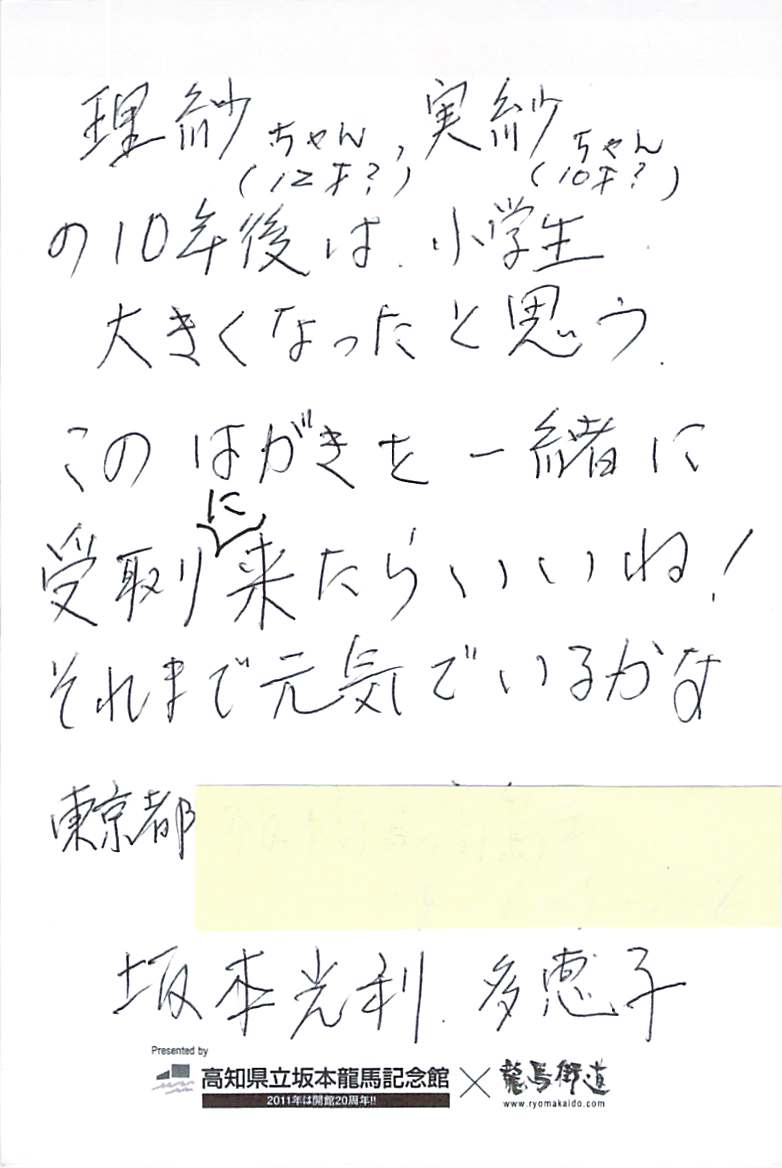 理紗ちゃん、実紗ちゃん
(12才?) (10才?)
の10年後は、小学生.
大きくなったと思う.
このはがきを一緒に
受取りに来たらいいね!
それまで元気でいるかな
東京都
坂本光利. 多恵子
Presented by
高知県立坂本龍馬記念館×龍馬街道
2011年は開館20周年!!
www.ryomakaido.com